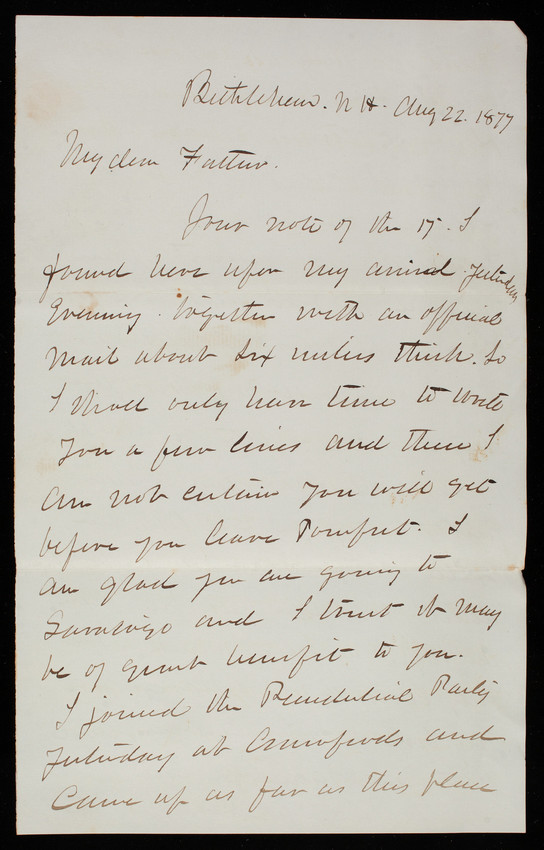 Bethlehem. N H. Aug 22. 1877
My dear Father.
Your note of the 17. I
found here upon my arrival yesterday
Evening. together with an official
mail about six inches thick. So
I shall only have time to write
you a few lines and these I
am not certain you will get
before you leave Pomfret. I
am glad you are going to
Saratoga and I trust it may
be of great benefit to you.
I joined the Presidential Party
yesterday at Crawfords and
came up as far as this place